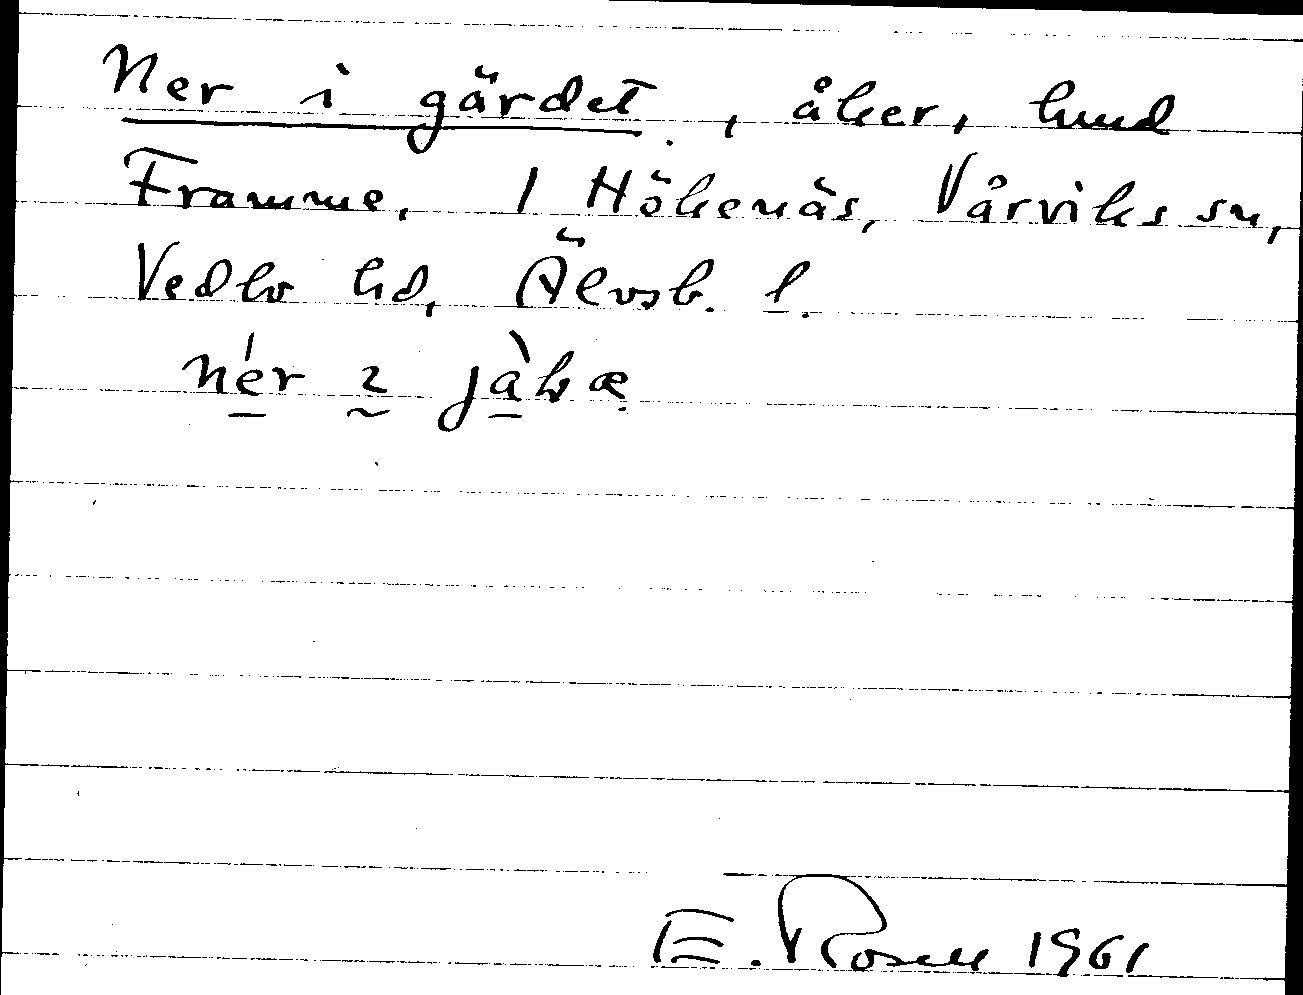 Ner i gärdet, åker, hmd
Framme, 1 Hökenäs, Vårviks sn,
Vedbo hd, Älvsb. l.
E. Rosell 1961